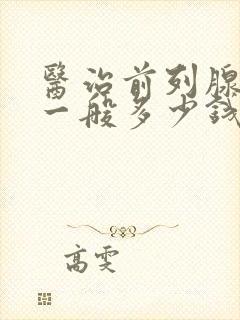 醫治前列腺
一般多少錢
高雯